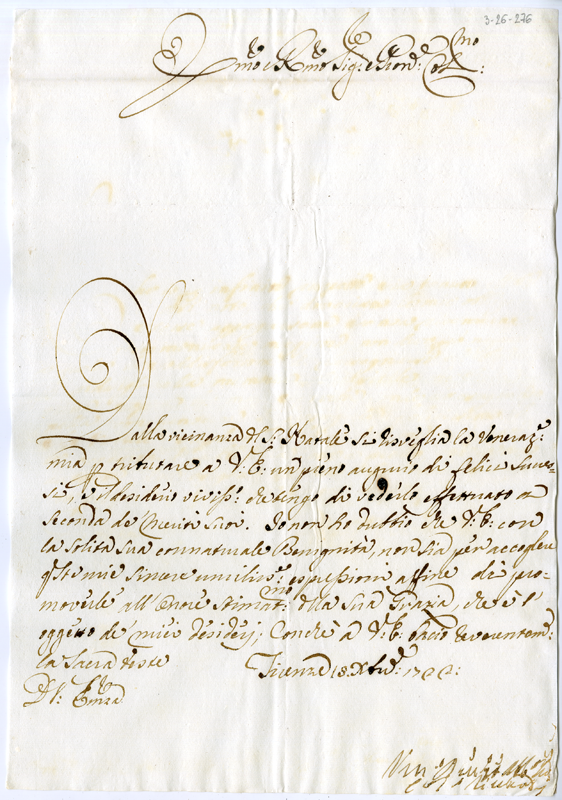 3-26-276
Emo e Rmo Sig.re e Pron.e Col.mo:
Dalla vicinanza del S: Natale si risveglia la veneraz.e
mia p tributare a V: E: un pieno augurio di felici succes=
si, e il desiderio viviss.o che tengo di vederlo effettuato a
seconda de' meriti suoi. Io non ho dubbio che V: E: con
la solita sua connaturale Benignità, non sia per accogliere
q.ste mie sincere umiliss.e espressioni affine di pro=
moverle all'onore stimat.mo della sua Grazia, che è l'
oggetto de' miei desiderj; Con che a V: E: bacio reverentem:
la Sacra Veste
Firenze 18 Xbre
D V: Emza